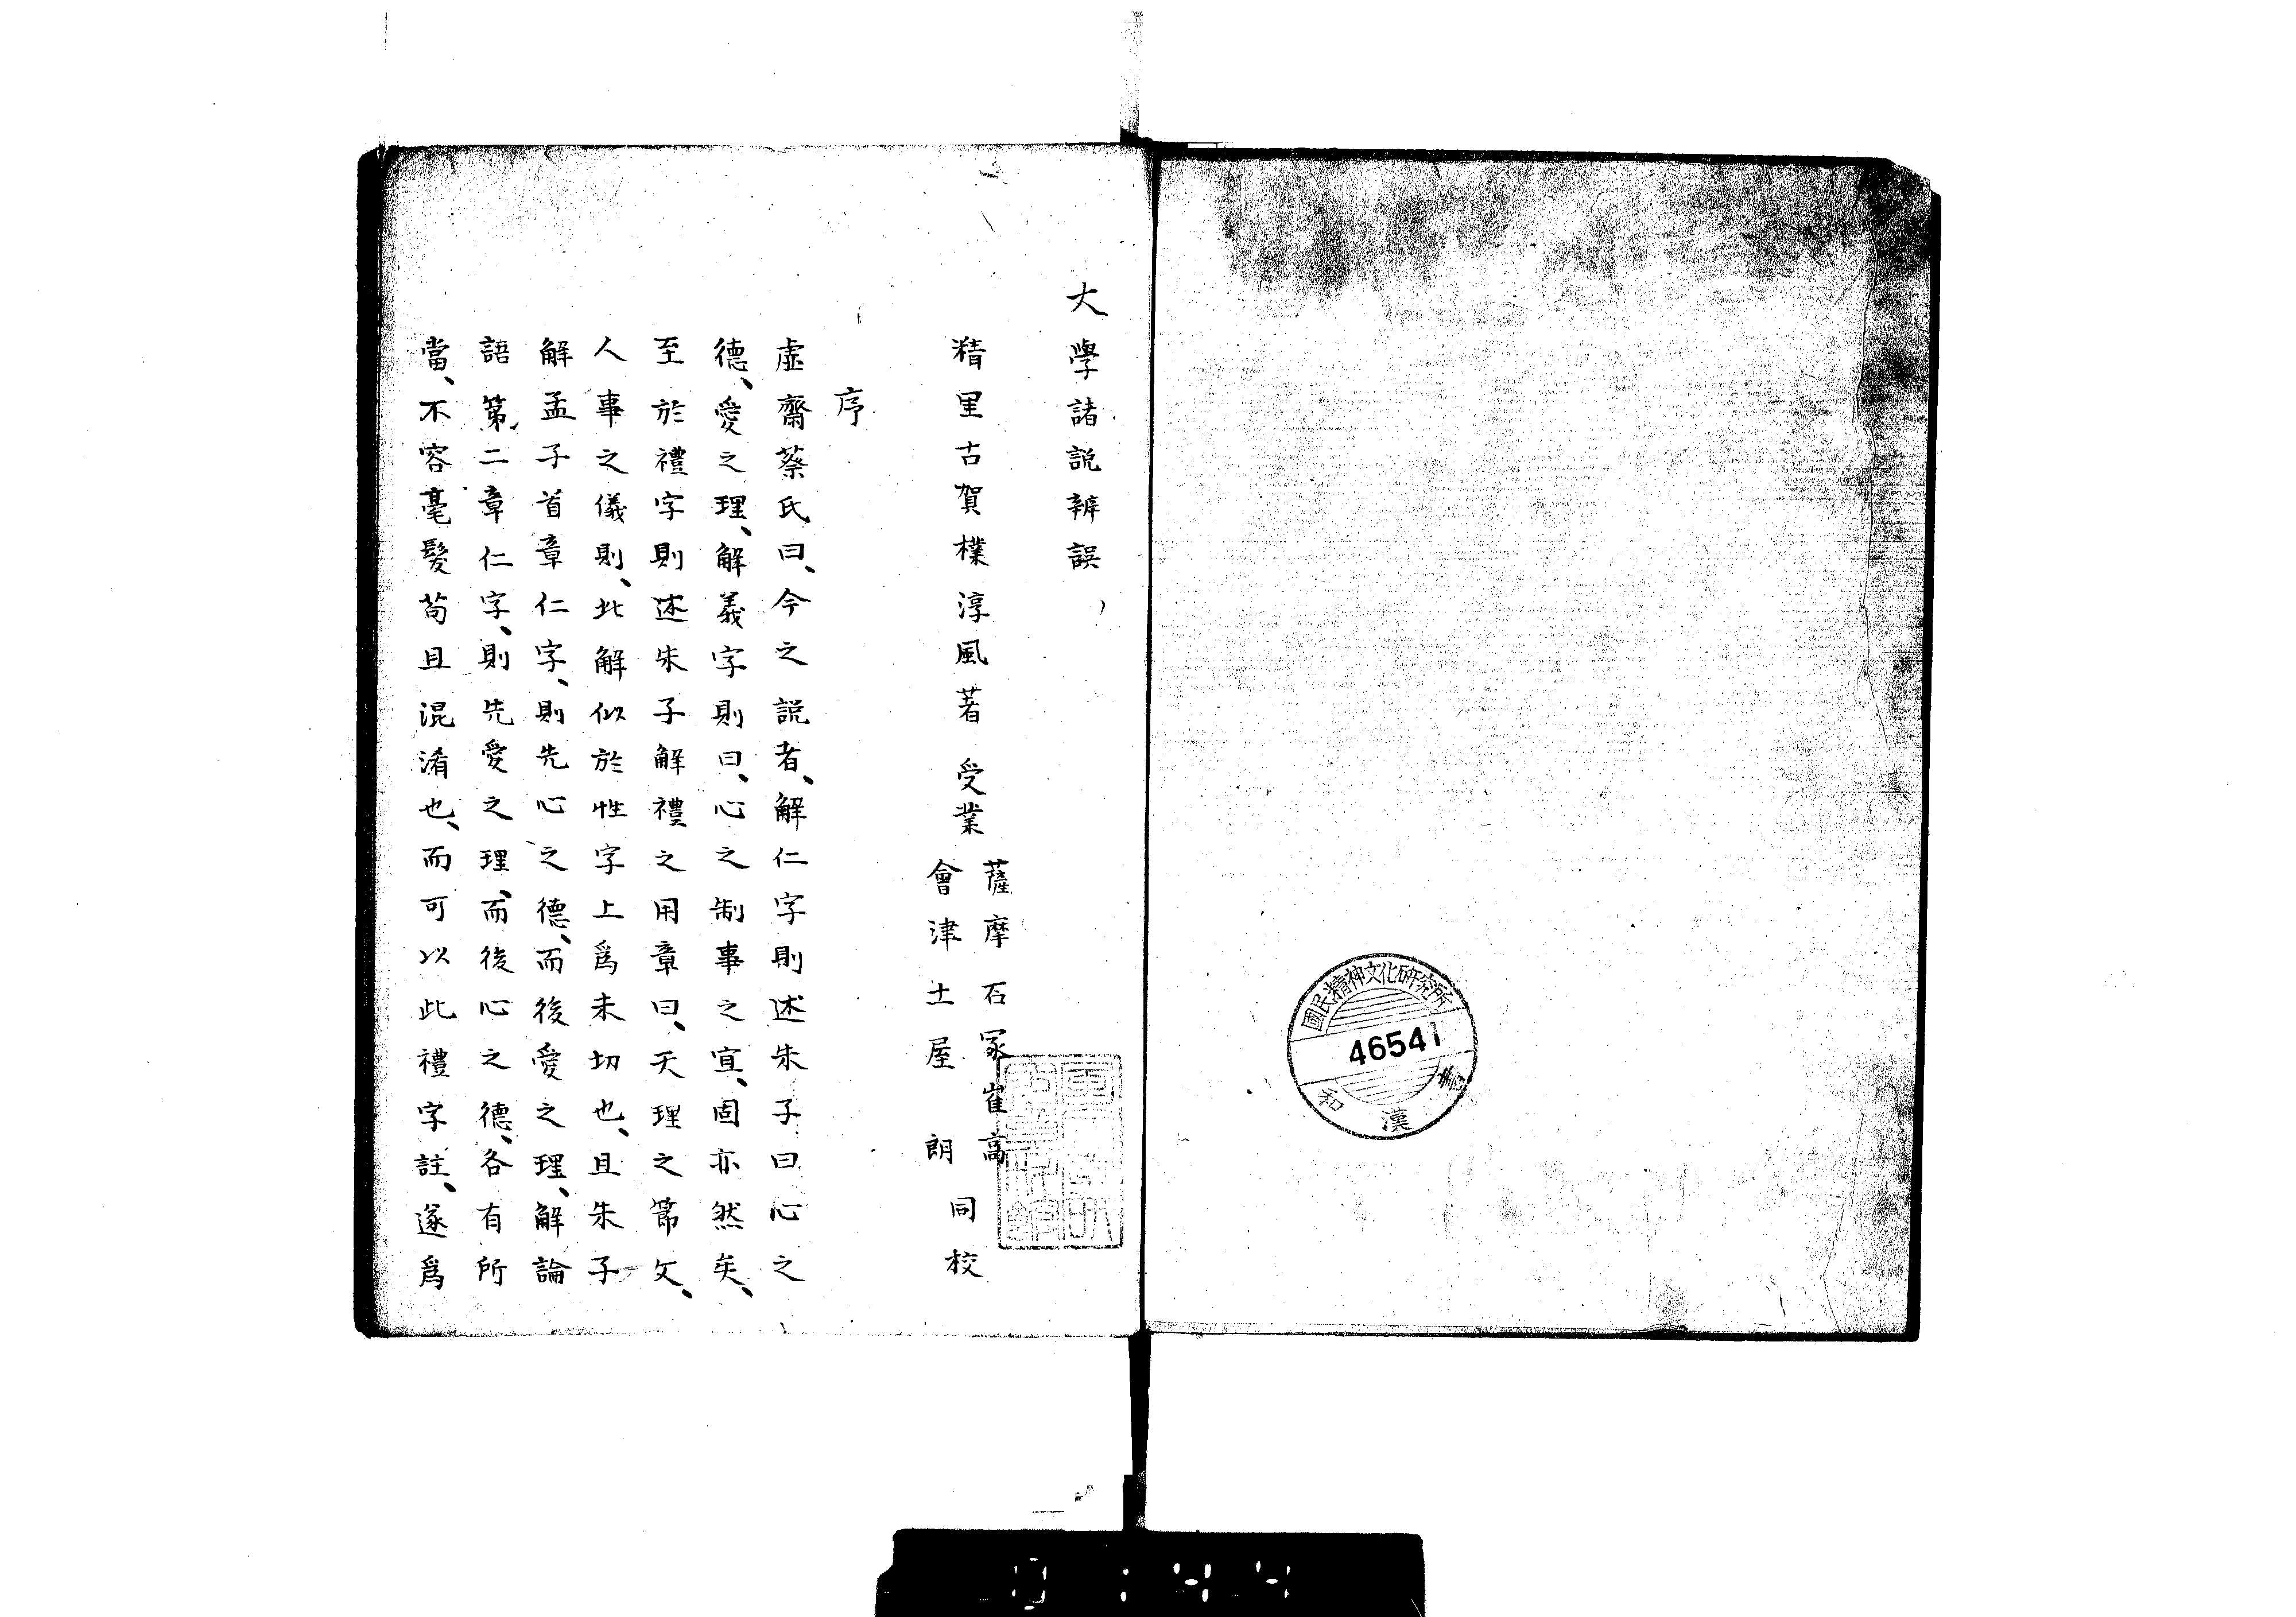 國民精神文化研究所
46541
和漢書
大學諸説辨誤
精里古賀樸淳風著 受業
薩摩 石冢崔高
會津 土屋 朗
同校
序
虛齋蔡氏曰、今之説者、解仁字則述朱子曰心之
德、愛之理、解義字則曰、心之制事之宜、固亦然矣、
至於禮字則述朱子解禮之用章曰、天理之節文、
人事之儀則、此解似於性字上爲未切也、且朱子
解孟子首章仁字、則先心之德、而後愛之理、解論
語第二章仁字、則先愛之理、而後心之德、各有所
當、不容毫髮苟且混淆也、而可以此禮字註、遂爲